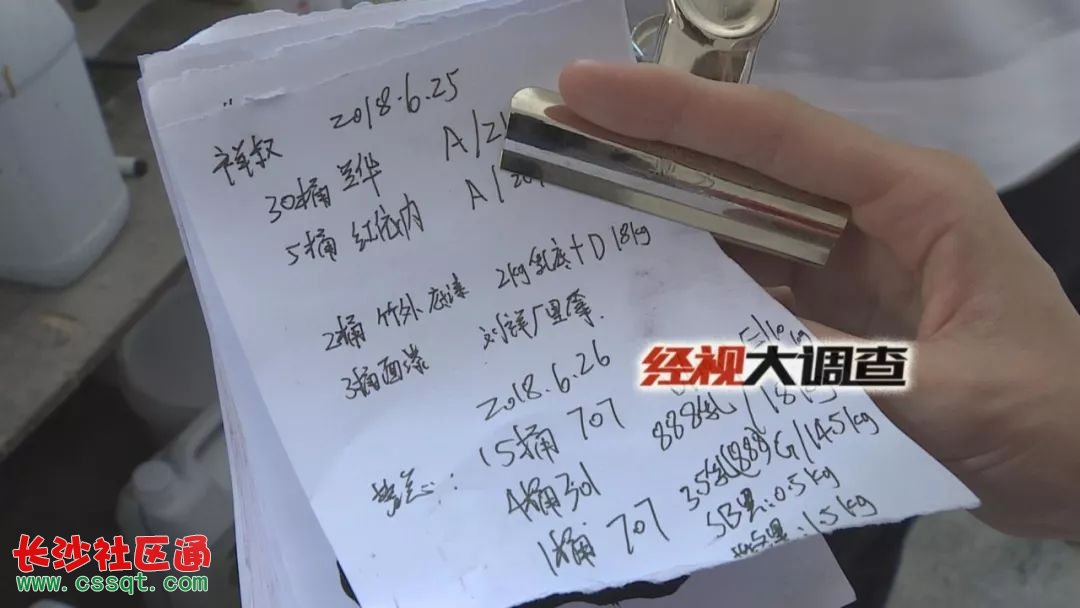 2018.6.25
祥叔
30桶 兰华 A/21
5桶 红依内 A/20
2桶 竹外底漆 2kg乳底+D 18kg
3桶面漆 厂里拿.
2018.6.26
15桶 707 888乳/18kg
4桶301 3.5乳(888)G/14.5kg
1桶 707 5B黑:0.5kg
:1.5kg
经视大调查
长沙社区通
www.cssqt.com